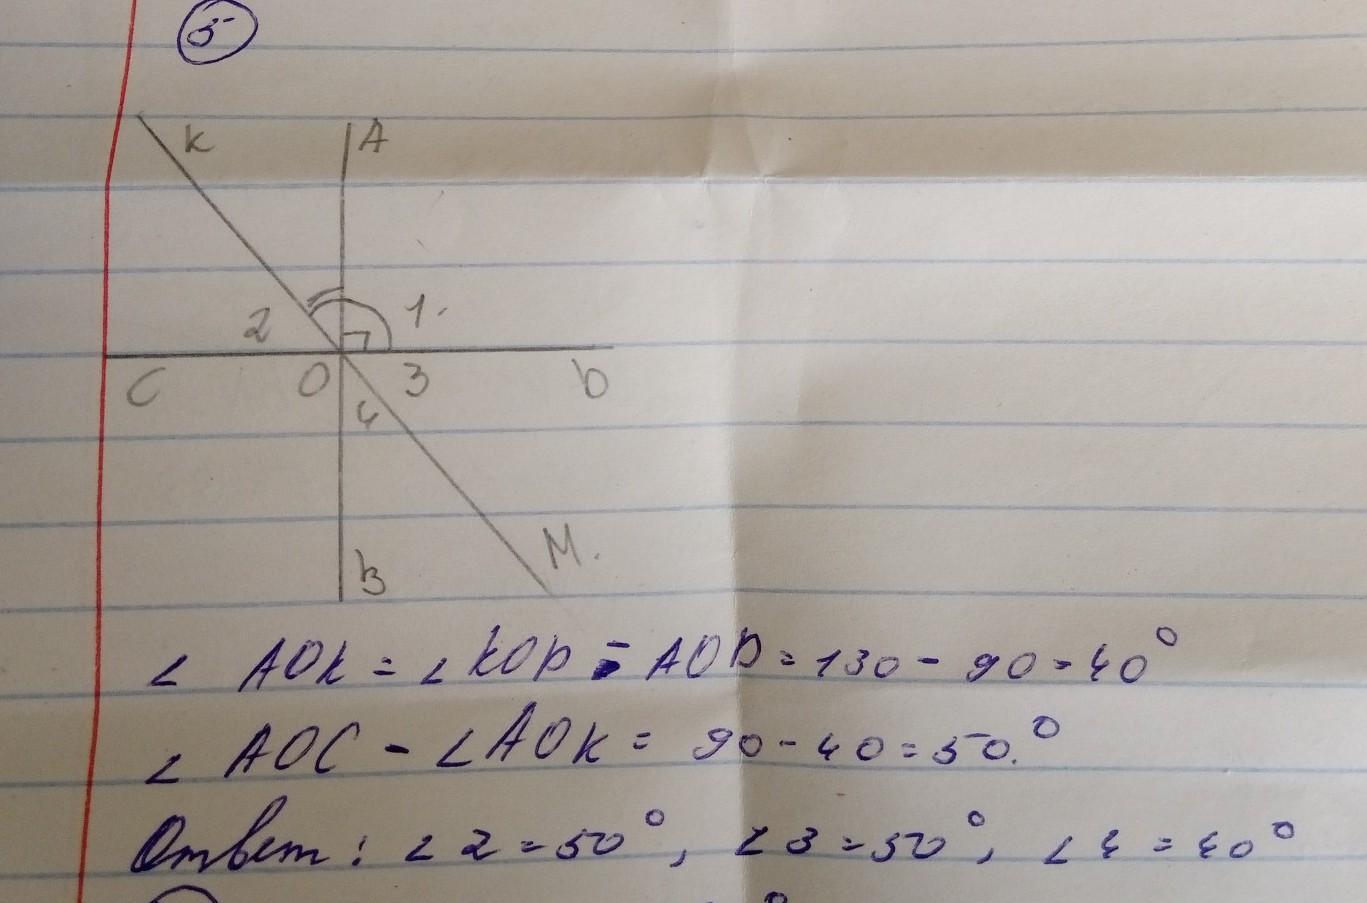 5
K A
2 1.
C O 3 D
4
M.
B
∠ AOK = ∠ KOD - AOD = 130 - 90 = 40°
∠ AOC - ∠ AOK = 90 - 40 = 50.°
Ответ: ∠ 2 = 50°, ∠ 3 = 50°, ∠ 4 = 40°